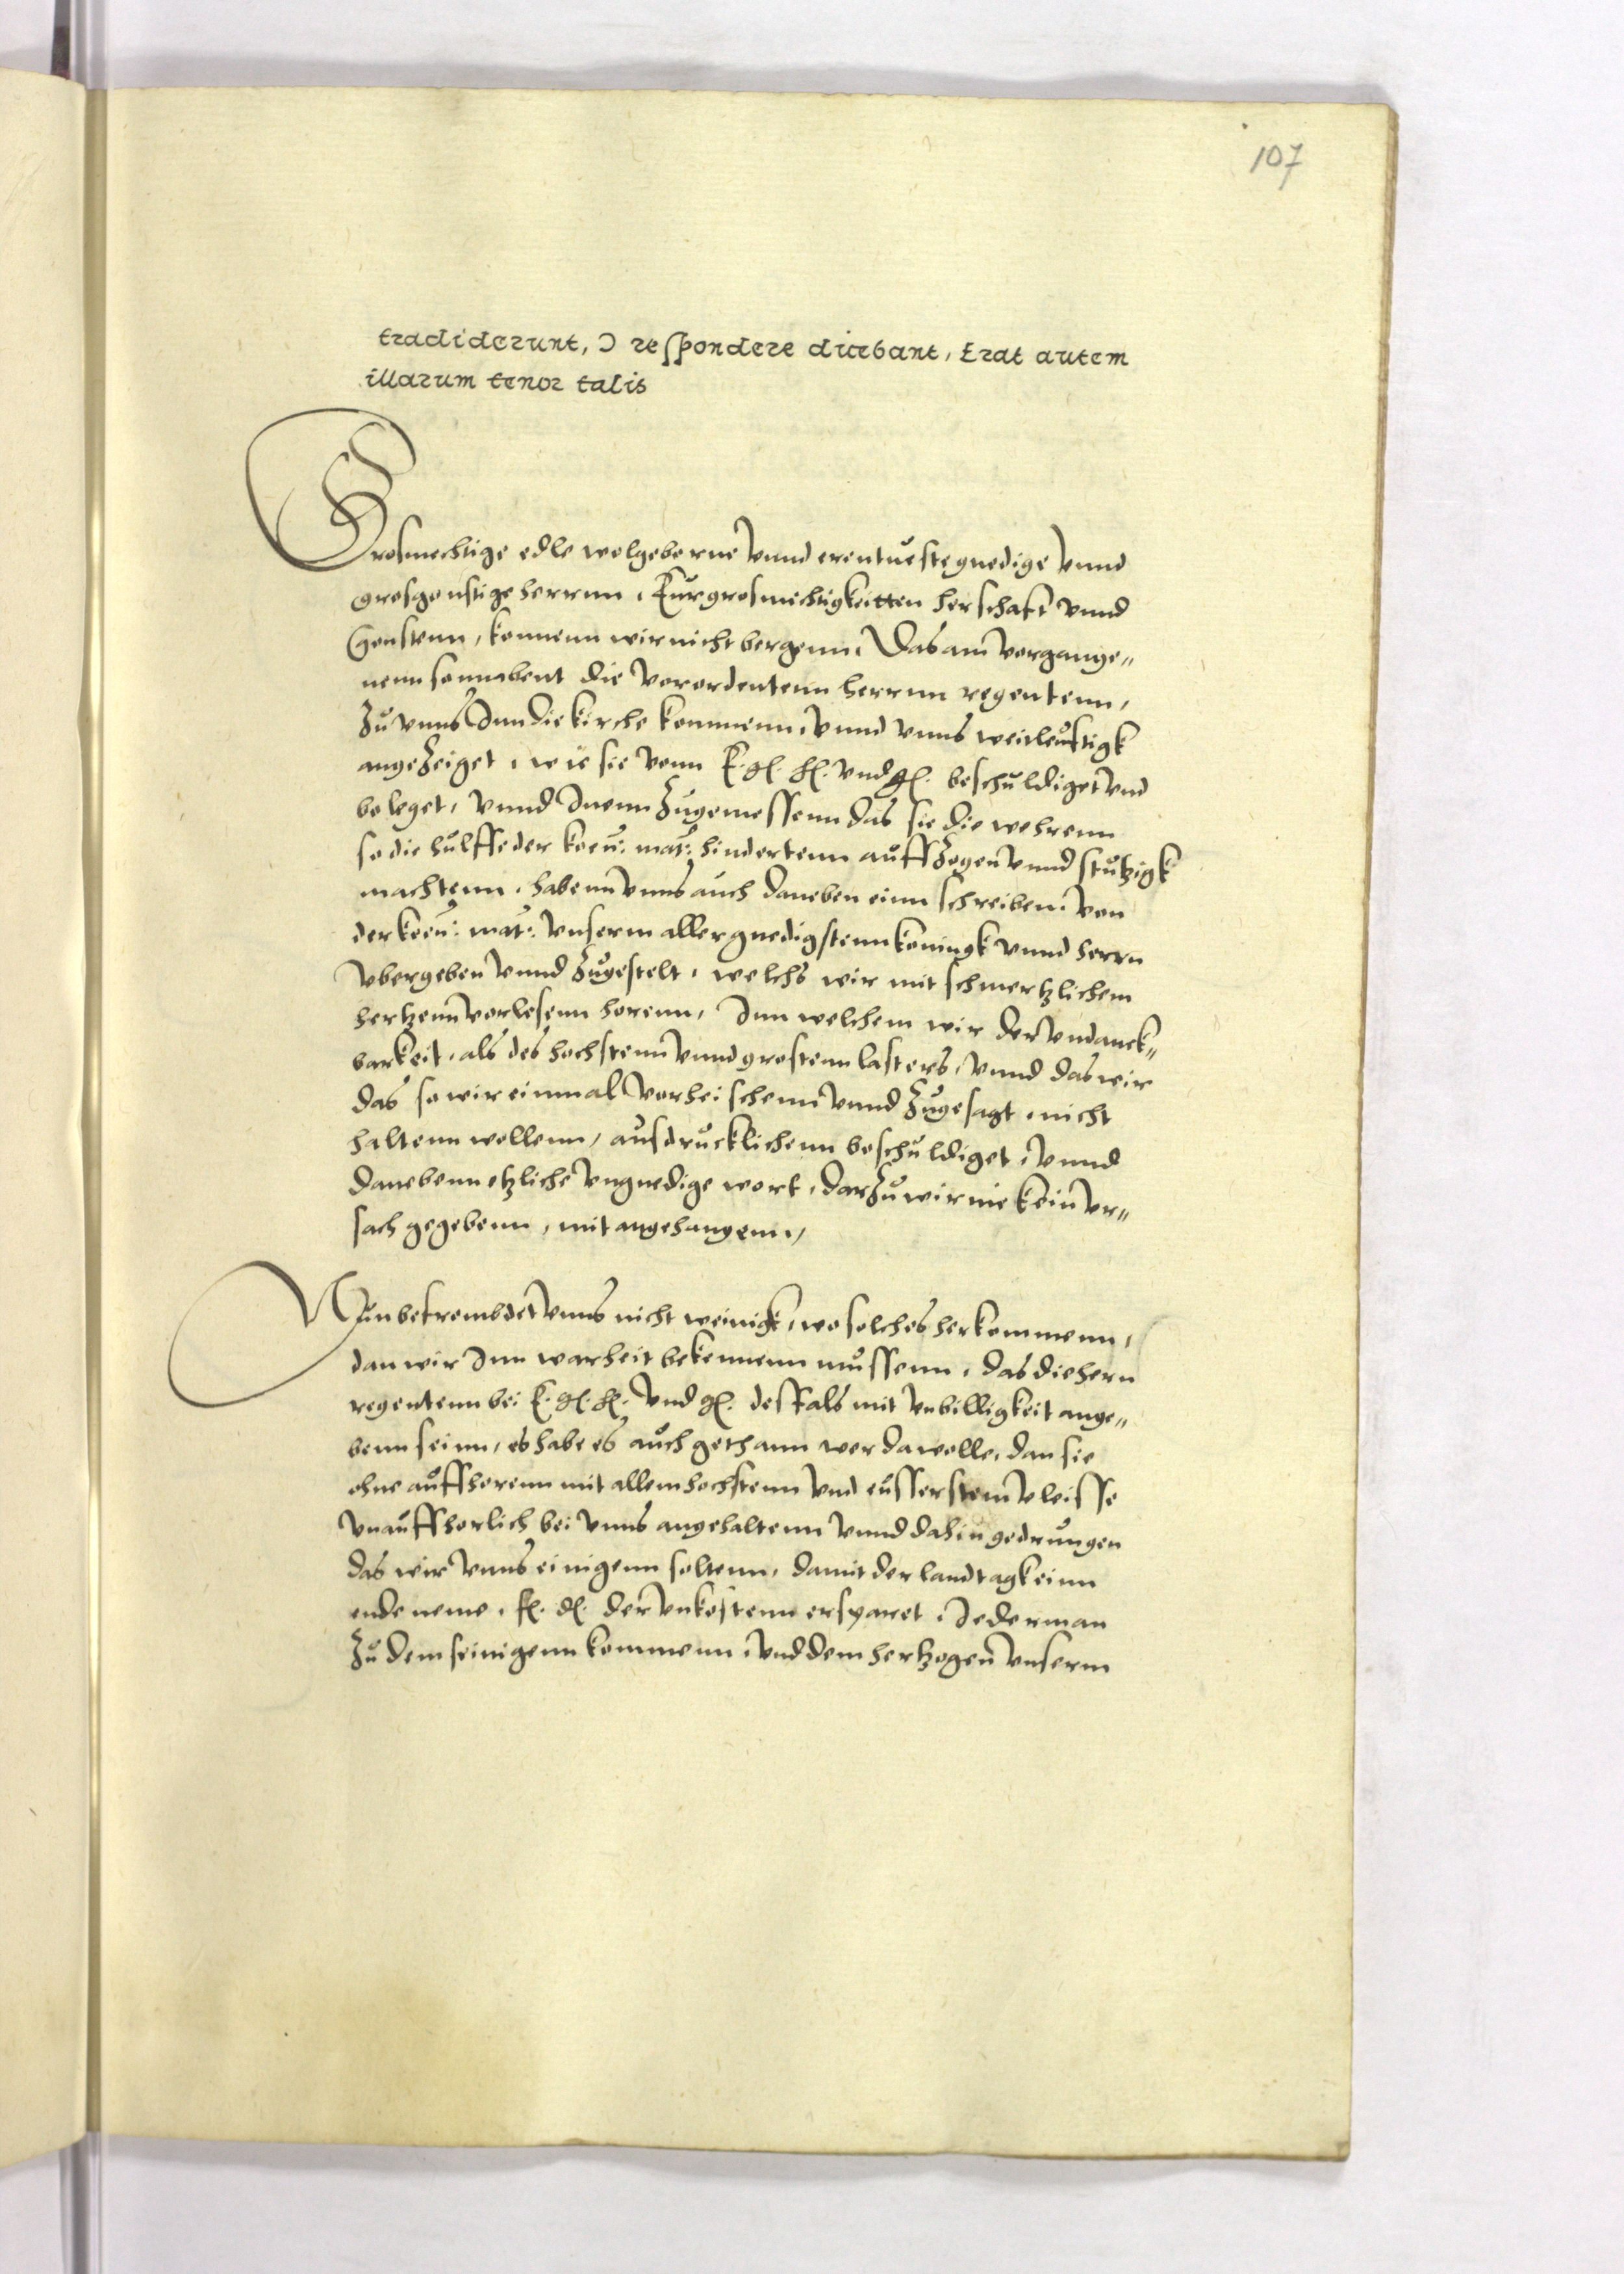 107
tradiderunt, Ɔ respondere dicebant, Erat autem
illarum tenor talis
Grosmechtige edle wolgeborne vnnd erentueste gnedige vnnd
grosgonstige herrnn, Eur grosmechtigkeitten herschaft vnnd
Gonstenn, konnenn wir nicht bergenn, Das am vorgange„
nenn sonnabent die verordentenn herrnn regentenn,
Zu vnns Inn die kirche kommenn, vnnd vnns weitleuftigk
angezeiget, wie sie vonn E. G. H. vnd G. beschuldiget vnd
beleget, vnnd Inenn zugemessenn das sie die wehrenn
so die hulffe der koen: mat: hindertenn auffzogenn vnnd stutzigk
machtenn, habenn vnns auch daneben einn schreibenn von
der koen: mat: vnserm allergnedigstenn koningk vnnd herrn
vbergeben vnnd zugestelt, welchs wir mit schmertzlichem
hertzenn vorlesenn horenn, Inn welchem wir der vndanck„
barkeit, als des hochstenn vnnd grostenn lasters, vnnd das wir
das so wir einmal vorheischenn vnnd zugesagt, nicht
haltenn wollenn, ausdrucklichenn beschuldiget, vnnd
danebenn etzliche vngnedige wort, darzu wir nie kein vr„
sach gegebenn, mit angehangenn,
Nun befrembdet vnns nicht weinigk, wo solches herkommenn,
dan wir Inn warheit bekennenn mussenn, das die hern
regentenn bei E. G. H. vnd G. desfals mit vnbilligkeit ange„
benn seinn, es habe es auch gethann wer da wolle, dan sie
ohne auffhorenn mit allem hochstenn vnd eusserstem vleisse
vnauffhorlich bei vnns angehaltenn vnnd dahin gedrungen
das wir vnns einigenn soltenn, damit der landtagk einn
ende neme, f. d. der vnkostenn ersparet, Jederman
zu dem seinigenn kommenn, vnd dem hertzogen vnserm